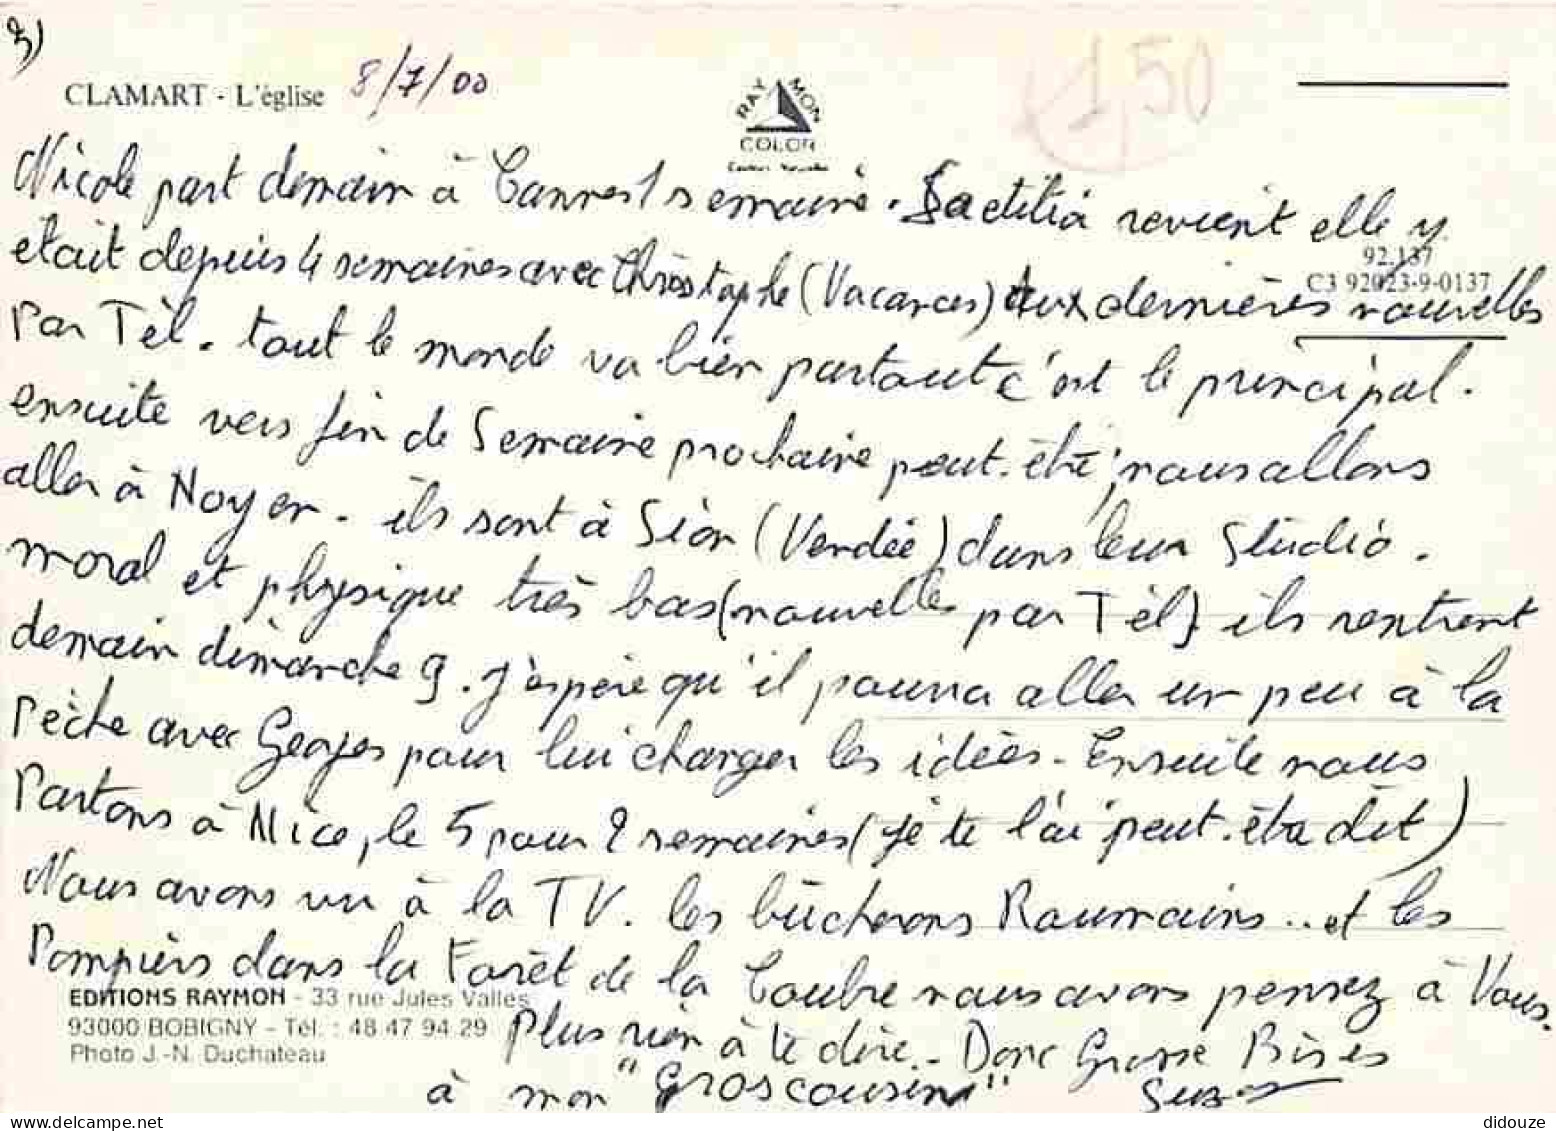 3)
CLAMART - L'église 8/7/00
RAY MON
COLOR
1,50
Nicole part demain à Cannes 1 semaine. Laetitia revient elle y
92.137
C3 92023-9-0137
était depuis 4 semaines avec Christophe (Vacances) Aux dernières nouvelles
Par Tèl. tout le monde va bien partout c'est le principal.
ensuite vers fin de Semaine prochaine peut-être, nous allons
aller à Noyer. ils sont à Sion (Vendée) dans leur Studio.
moral et physique très bas (nouvelles par Tèl) ils rentrent
demain dimanche 9. j'espère qu'il pourra aller un peu à la
Pèche avec Georges pour lui changer les idées. Ensuite nous
Partons à Nice, le 5 pour 2 semaines (je te l'ai peut-être dit)
Nous avons vu à la TV. les bûcherons Roumains.. et les
Pompiers dans la Forêt de la Coubre nous avons pensez à Vous.
EDITIONS RAYMON - 33 rue Jules Vallès
93000 BOBIGNY - Tél. : 48 47 94 29
Photo J.-N. Duchateau
Plus rien à te dire. Donc Grosse Bises
à mon "Gros cousin"
didouze
delcampe.net